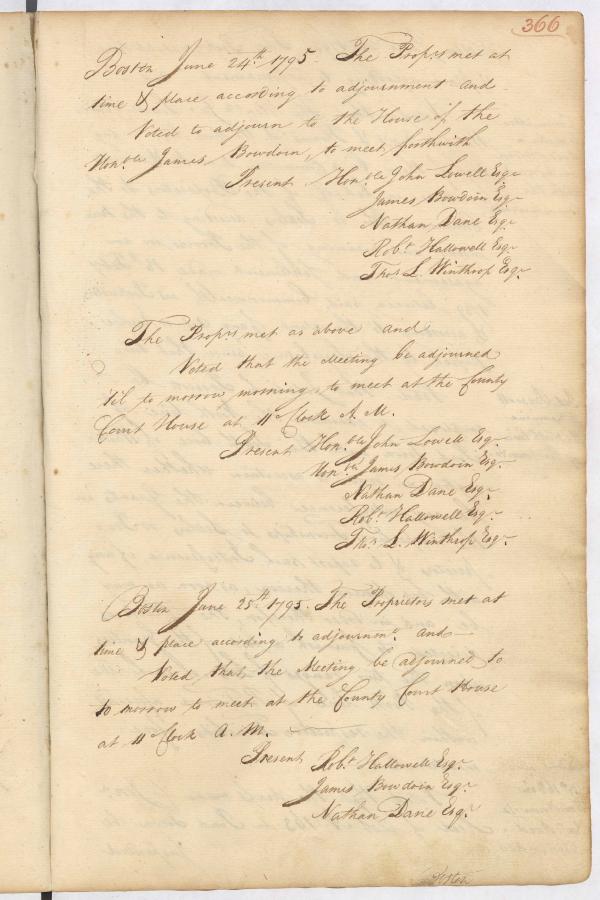 366
Boston June 24th. 1795. The Proprs met at
time & place according to adjournment and
Voted to adjourn to the House of the
Honble James Bowdoin, to meet forthwith
Present Honble John Lowell Esqr
James Bowdoin Esqr
Nathan Dane Esqr
Robt Hallowell Esqr
Thos L. Winthrop Esqr
The Proprs met as above and
Voted that the Meeting be adjourned
'til to morrow morning, to meet at the County
Court House at 11 oClock A. M.
Present Honble John Lowell Esqr
Honble James Bowdoin Esqr
Nathan Dane Esqr
Robt Hallowell Esqr
Thos L. Winthrop Esqr
Boston June 25th. 1795. The Proprietors met at
time & place according to adjournmt and
Voted, that the Meeting be adjourned to
to morrow to meet at the County Court House
at 11 oClock A. M.
Present Robt Hallowell Esqr
James Bowdoin Esqr
Nathan Dane Esqr
Boston